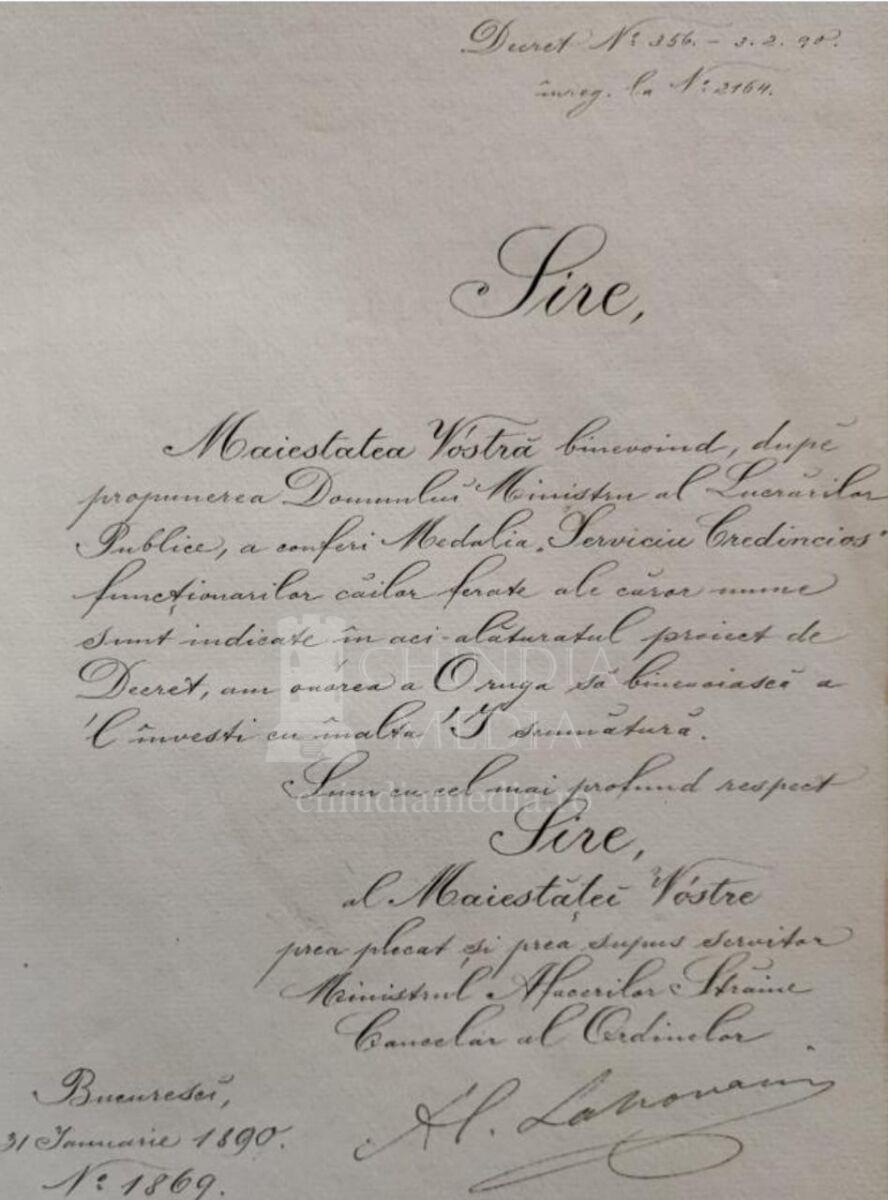 Decret Nº 356. – 3. 2. 90.
înreg. la Nº 2164.
Sire,
Maiestatea Vóstră binevoind, după
propunerea Domnului Ministru al Lucrărilor
Publice, a conferi Medalia „Serviciu Credincios”
funcţionarilor căilor ferate ale căror nume
sunt indicate în aci-alăturatul proiect de
Decret, am onórea a O ruga să binevoiască a
'l învesti cu înalta 'I semnătură.
CHINDIA
MEDIA
chindiamedia.ro
Sunt cu cel mai profund respect
Sire,
al Maiestăţei Vóstre
prea plecat şi prea supus servitor
Ministrul Afacerilor Străine
Cancelar al Ordinelor
Bucurescĭ,
31 Ianuarie 1890.
Nº 1869.
Al. Lahovari